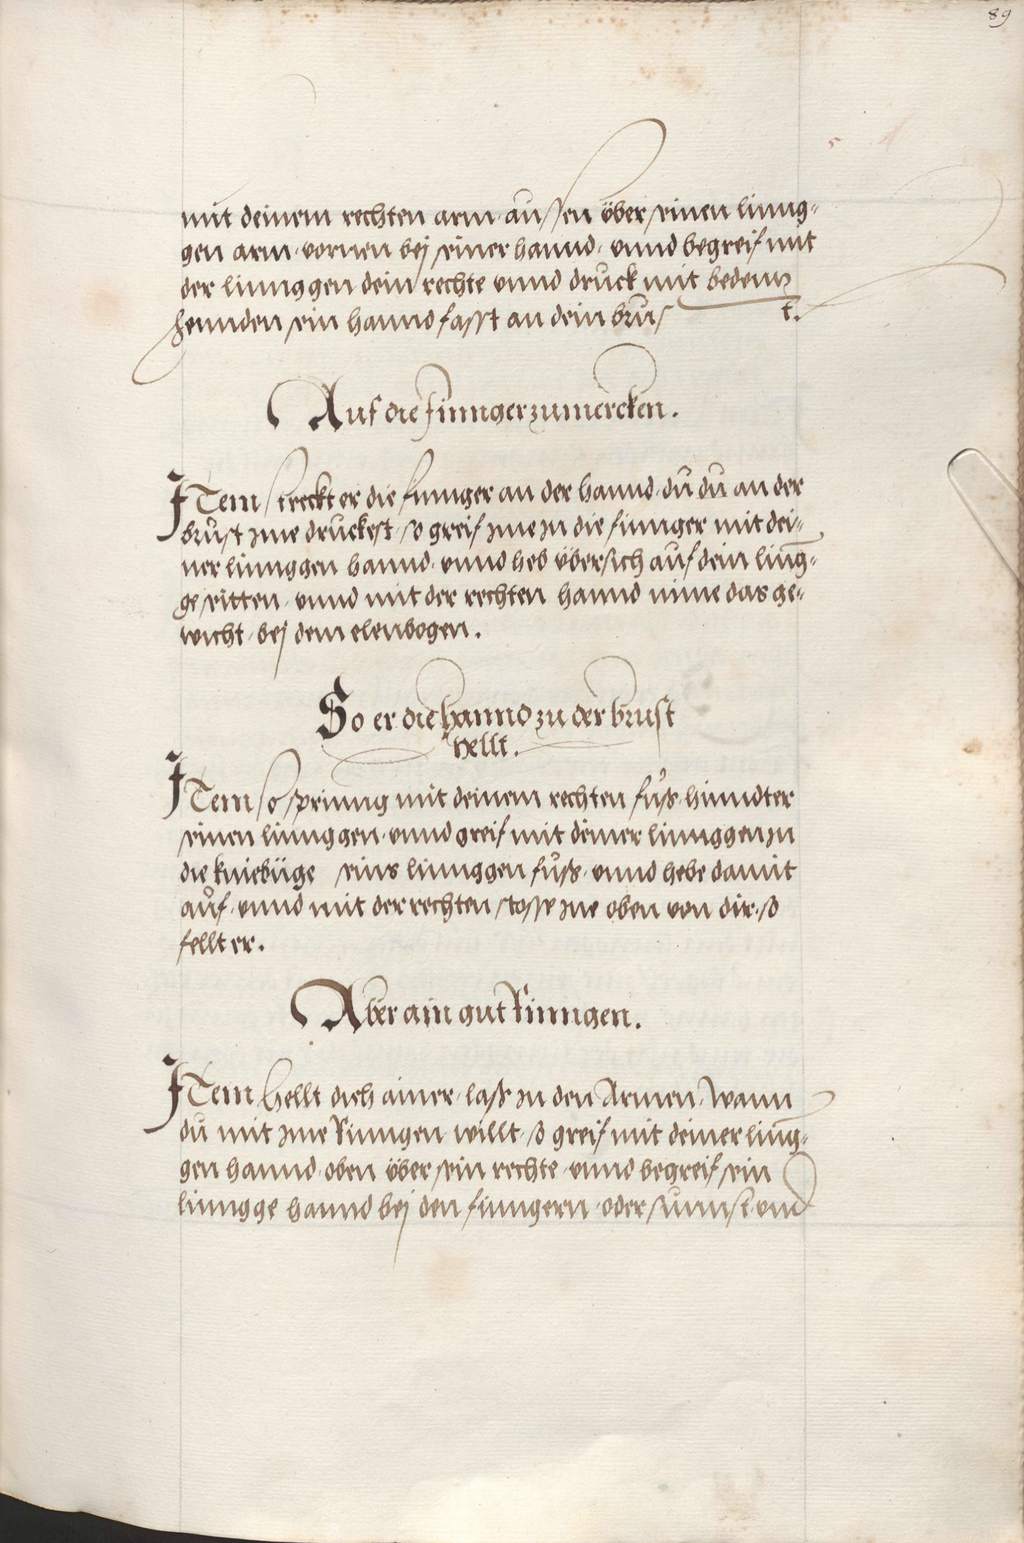 89
mit deinem rechten arm aussen über seinen linng-
gen arm vornen bej seiner hannd vnnd begreif mit
der linnggen dein rechte vnnd druck mit beden
hennden sein hannd fasst an dein brus t.
Auf die finnger zu mercken.
ITem streckt er die finnger an der hannd du du an der
brust jme druckest so greif jme jn die finnger mit dei-
ner linnggen hannd vnnd heb übersich auf dein lingg-
ge seitten vnnd mit der rechten hannd nime das ge-
wicht bej dem elenbogen.
So er die hannd zu der brust
hellt.
ITem so sprinng mit deinem rechten fuß hinndter
seinen linnggen vnnd greif mit deiner linnggen jn
die kniebüge seins linnggen fuß vnnd hebe damit
auf vnnd mit der rechten stosse jne oben von dir so
fellt er.
Aber ain gut Rinngen.
ITem hellt dich ainer laß jn den Armen wann
du mit jme Rinngen willt so greif mit deiner lingg-
gen hannd oben über sein rechte vnnd begreif sein
linngge hannd bej den finngern oder sunnst vnd